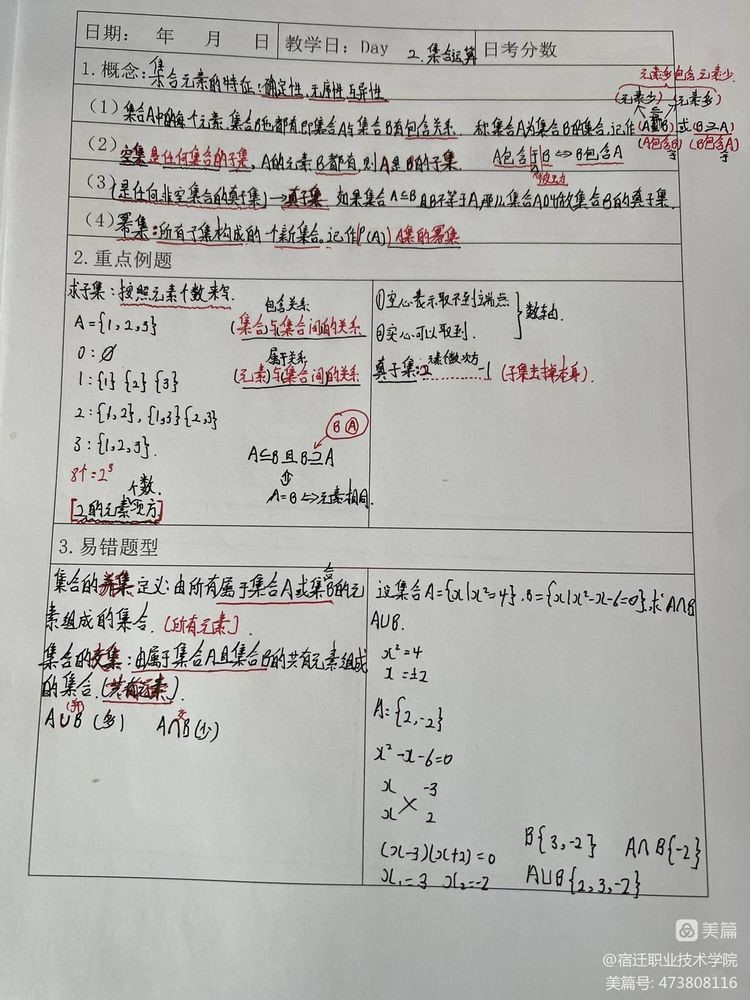 日期: 年 月 日 教学日: Day 2.集合运算 日考分数
1.概念: 集合元素的特征: 确定性, 无序性 互异性.
元素多包含元素少.
(元素少) (元素多)
(1) 集合A中的每个元素,集合B也都有即集合A与集合B有包含关系. 称集合A为集合B的集合.记作(A⊆B)或(B⊇A)
(A包含于B) (B包含A)
(2) 空集是任何集合的子集, A的元素B都有,则A是B的子集. A包含于B⇔B包含A
被动
(3) (是任何非空集合的真子集)→真子集 如果集合A⊆B且B不等于A,那么集合A叫做集合B的真子集.
(4) 幂集:所有子集构成的一个新集合.记作P(A) A集的幂集
2.重点例题
求子集:按照元素个数来写.
A={1,2,3}
0:∅
1:{1} {2} {3}
2:{1,2},{1,3}{2,3}
3:{1,2,3}.
8个=2³
个数.
[2的元素次方]
包含关系
(集合)与(集合)间的关系
属于关系
(元素)与(集合)间的关系
B A
A⊆B且B⊇A
⇕
A=B⇔元素相同.
①空心表示取不到端点
②实心可以取到.
数轴.
真子集:2 元素个数次方 -1 (子集去掉本身).
3.易错题型
集合的并集定义:由所有属于集合A或集合B的元
素组成的集合. (所有元素).
集合的交集:由属于集合A且集合B的共有元素组成
的集合.(共有元素).
A∪B (多) A∩B(少)
(并) 交
设集合A={x|x²=4}.B={x|x²-x-6=0},求A∩B
A∪B.
x²=4
x=±2
A={2,-2}
x²-x-6=0
x -3
x 2
(x-3)(x+2)=0
x₁=3 x₂=-2
B{3,-2} A∩B{-2}
A∪B{2,3,-2}
美篇
@宿迁职业技术学院
美篇号: 473808116